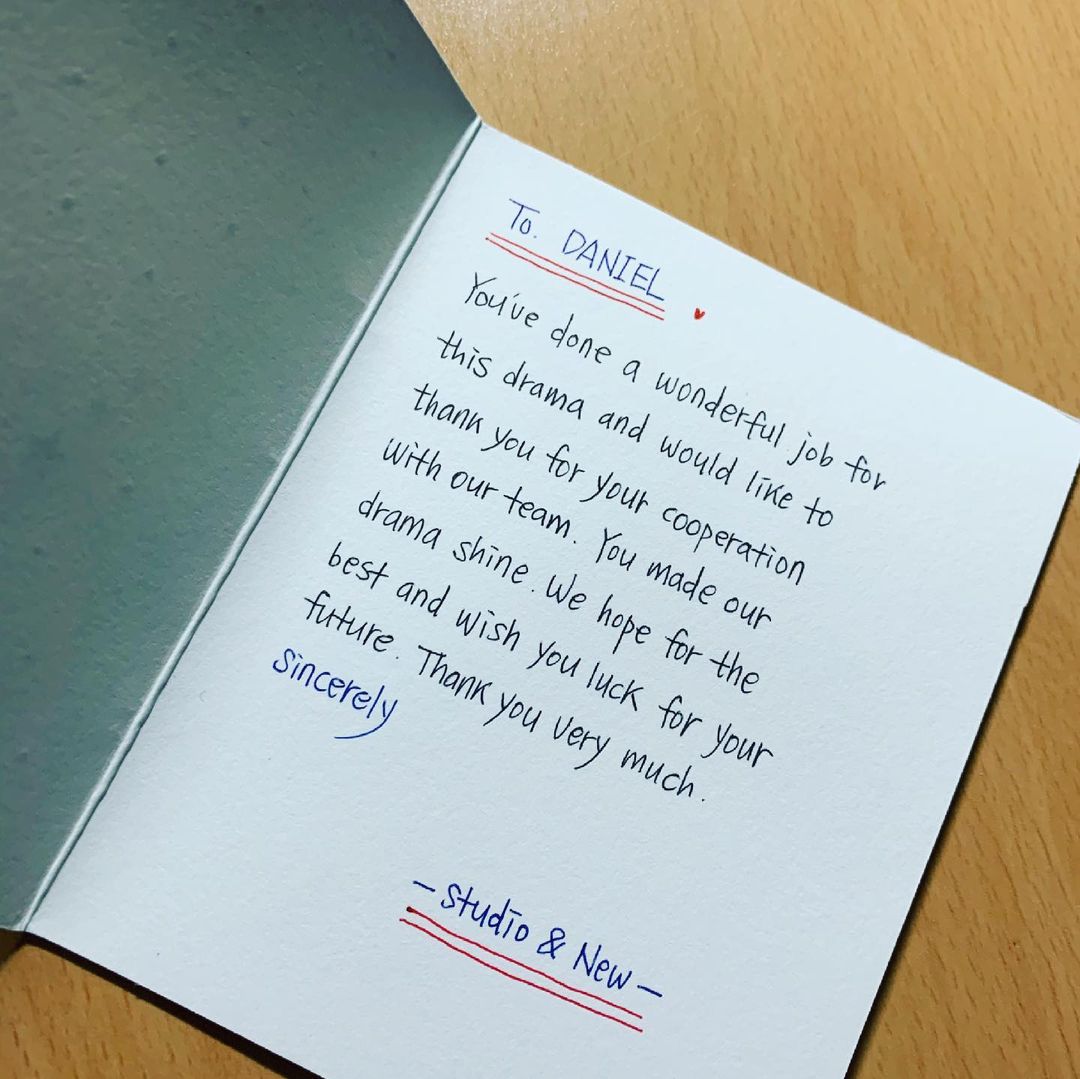 To. DANIEL
You've done a wonderful job for
this drama and would like to
thank you for your cooperation
with our team. You made our
drama shine. We hope for the
best and wish you luck for your
future. Thank you very much.
Sincerely
- Studio & New -